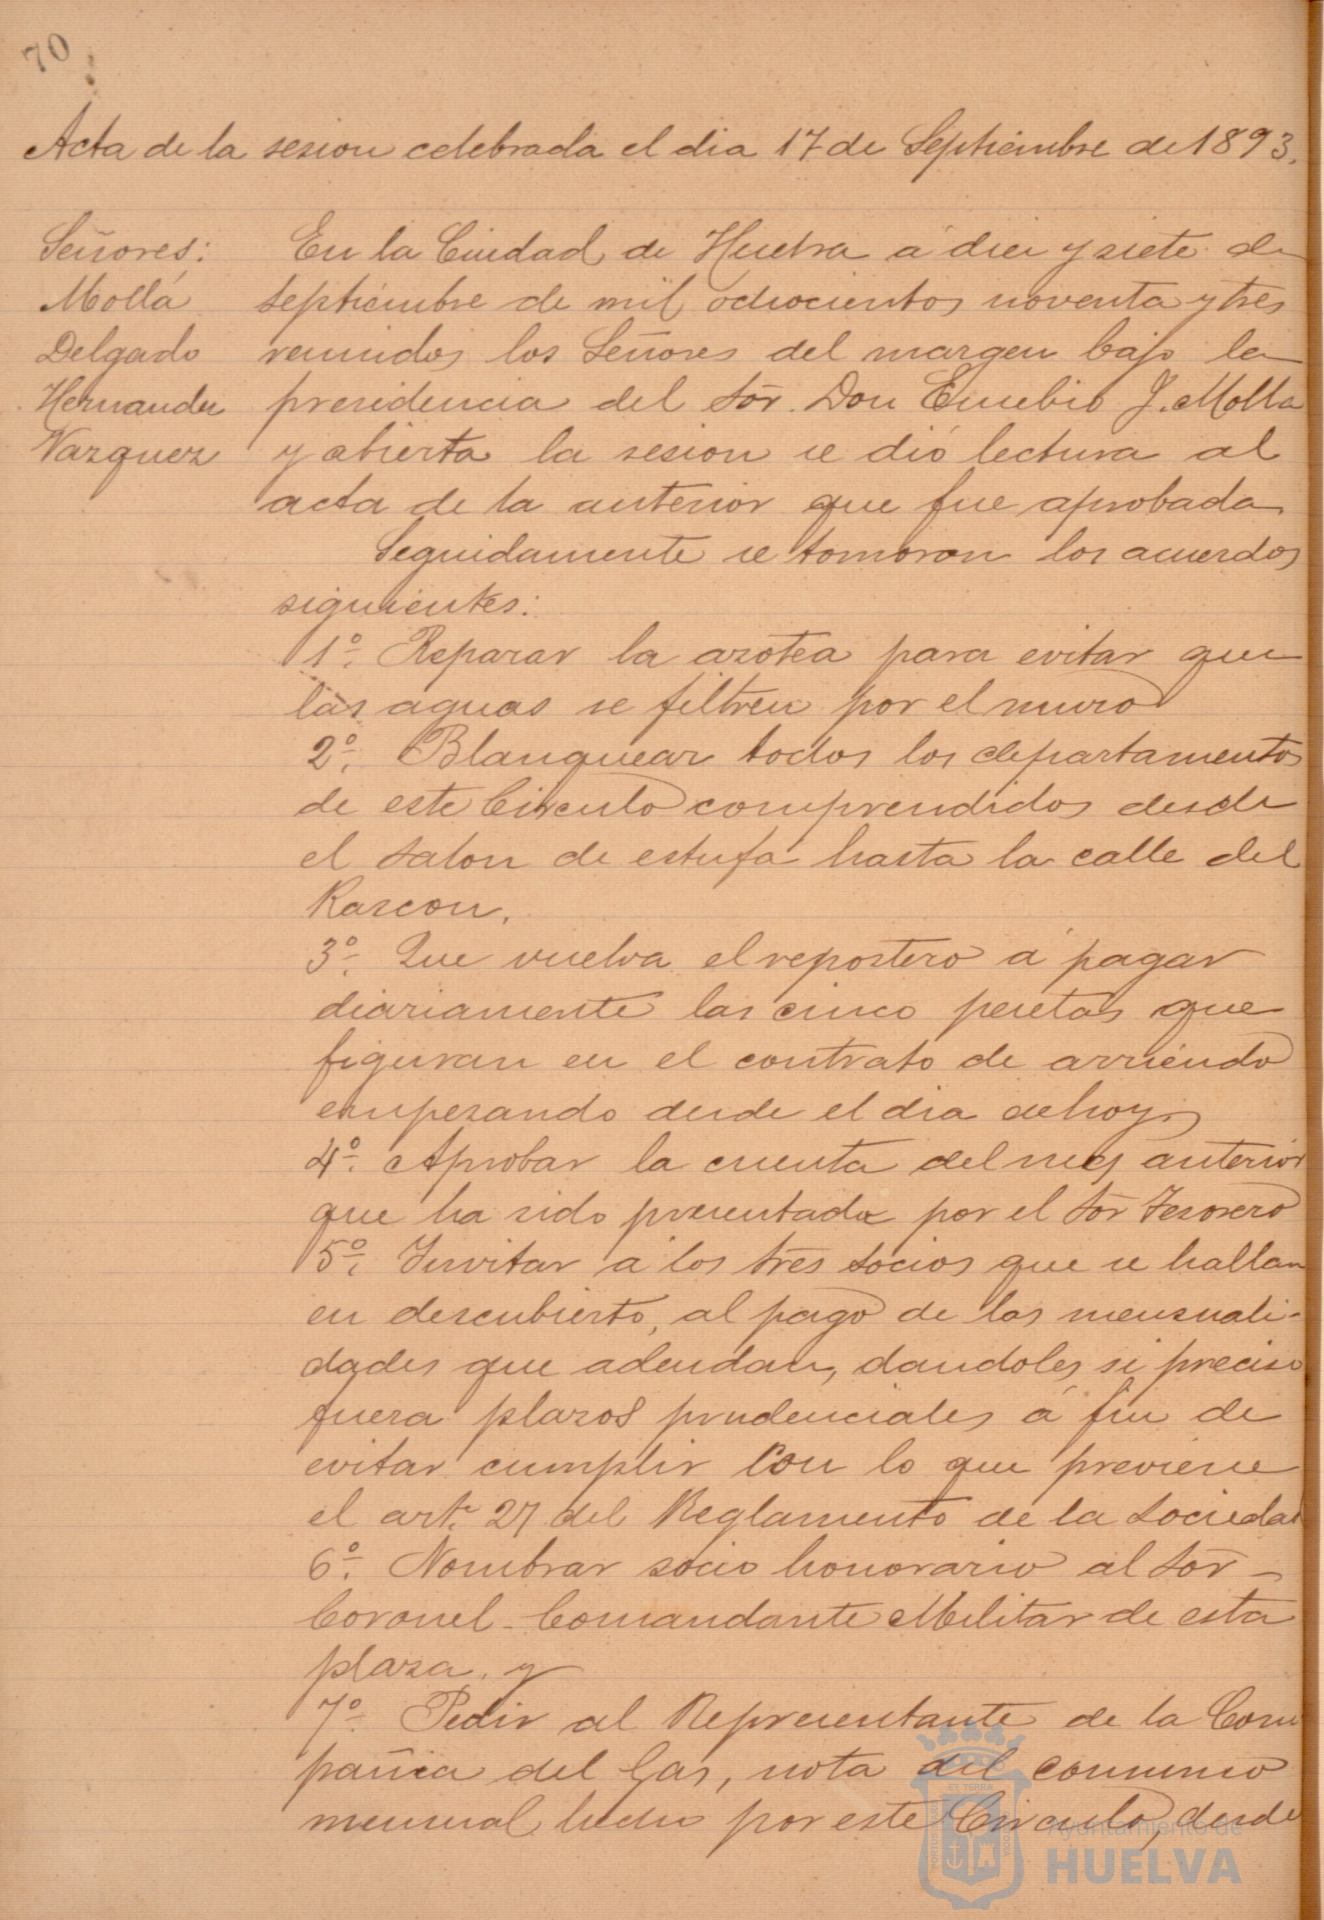 70
Acta de la sesion celebrada el dia 17 de Septiembre de 1893.
Señores:
Mollá
Delgado
Hernandez
Vazquez
En la Ciudad de Huelva á diez y siete de
septiembre de mil ochocientos noventa y tres
reunidos los Señores del margen bajo la
presidencia del Sõr. Don Eusebio J. Molla
y abierta la sesion se dió lectura al
acta de la anterior que fue aprobada
Seguidamente se tomoron los acuerdos
siguientes:
1º. Reparar la azotea para evitar que
las aguas se filtren por el muro
2º. Blanquear todos los departamentos
de este Circulo comprendidos desde
el salon de estufa hasta la calle del
Rascon.
3º. Que vuelva el repostero á pagar
diariamente las cinco pesetas que
figuran en el contrato de arriendo
empezando desde el dia de hoy
4º. Aprobar la cuenta del mes anterior
que ha sido presentada por el Sõr Tesorero
5º. Invitar á los tres socios que se hallan
en descubierto, al pago de las mensuali-
dades que adeudan, dandoles si preciso
fuera plazos prudenciales á fin de
evitar cumplir con lo que previene
el art. 27 del Reglamento de la Sociedad
6º. Nombrar socio honorario al Sõr
Coronel-Comandante Militar de esta
plaza, y
7º. Pedir al Representante de la Com
pañia del Gas, nota del consumo
mensual hecho por este Circulo, desde
Ayuntamiento de
HUELVA